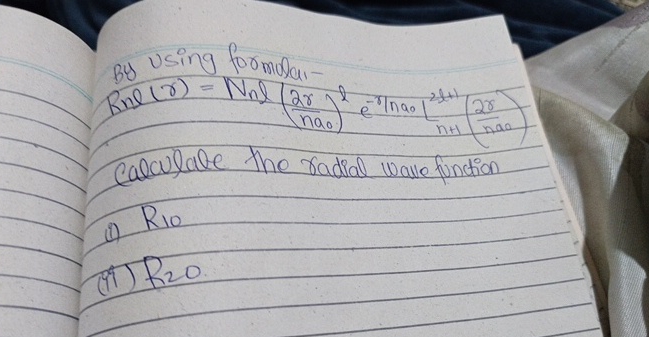 By using formula:-
Rnl(r) = Nnl (2r/na₀)^l e^-r/na₀ L^2l+1 n+1 (2r/na₀)
Calculate the radial wave function
(i) R10
(ii) R20